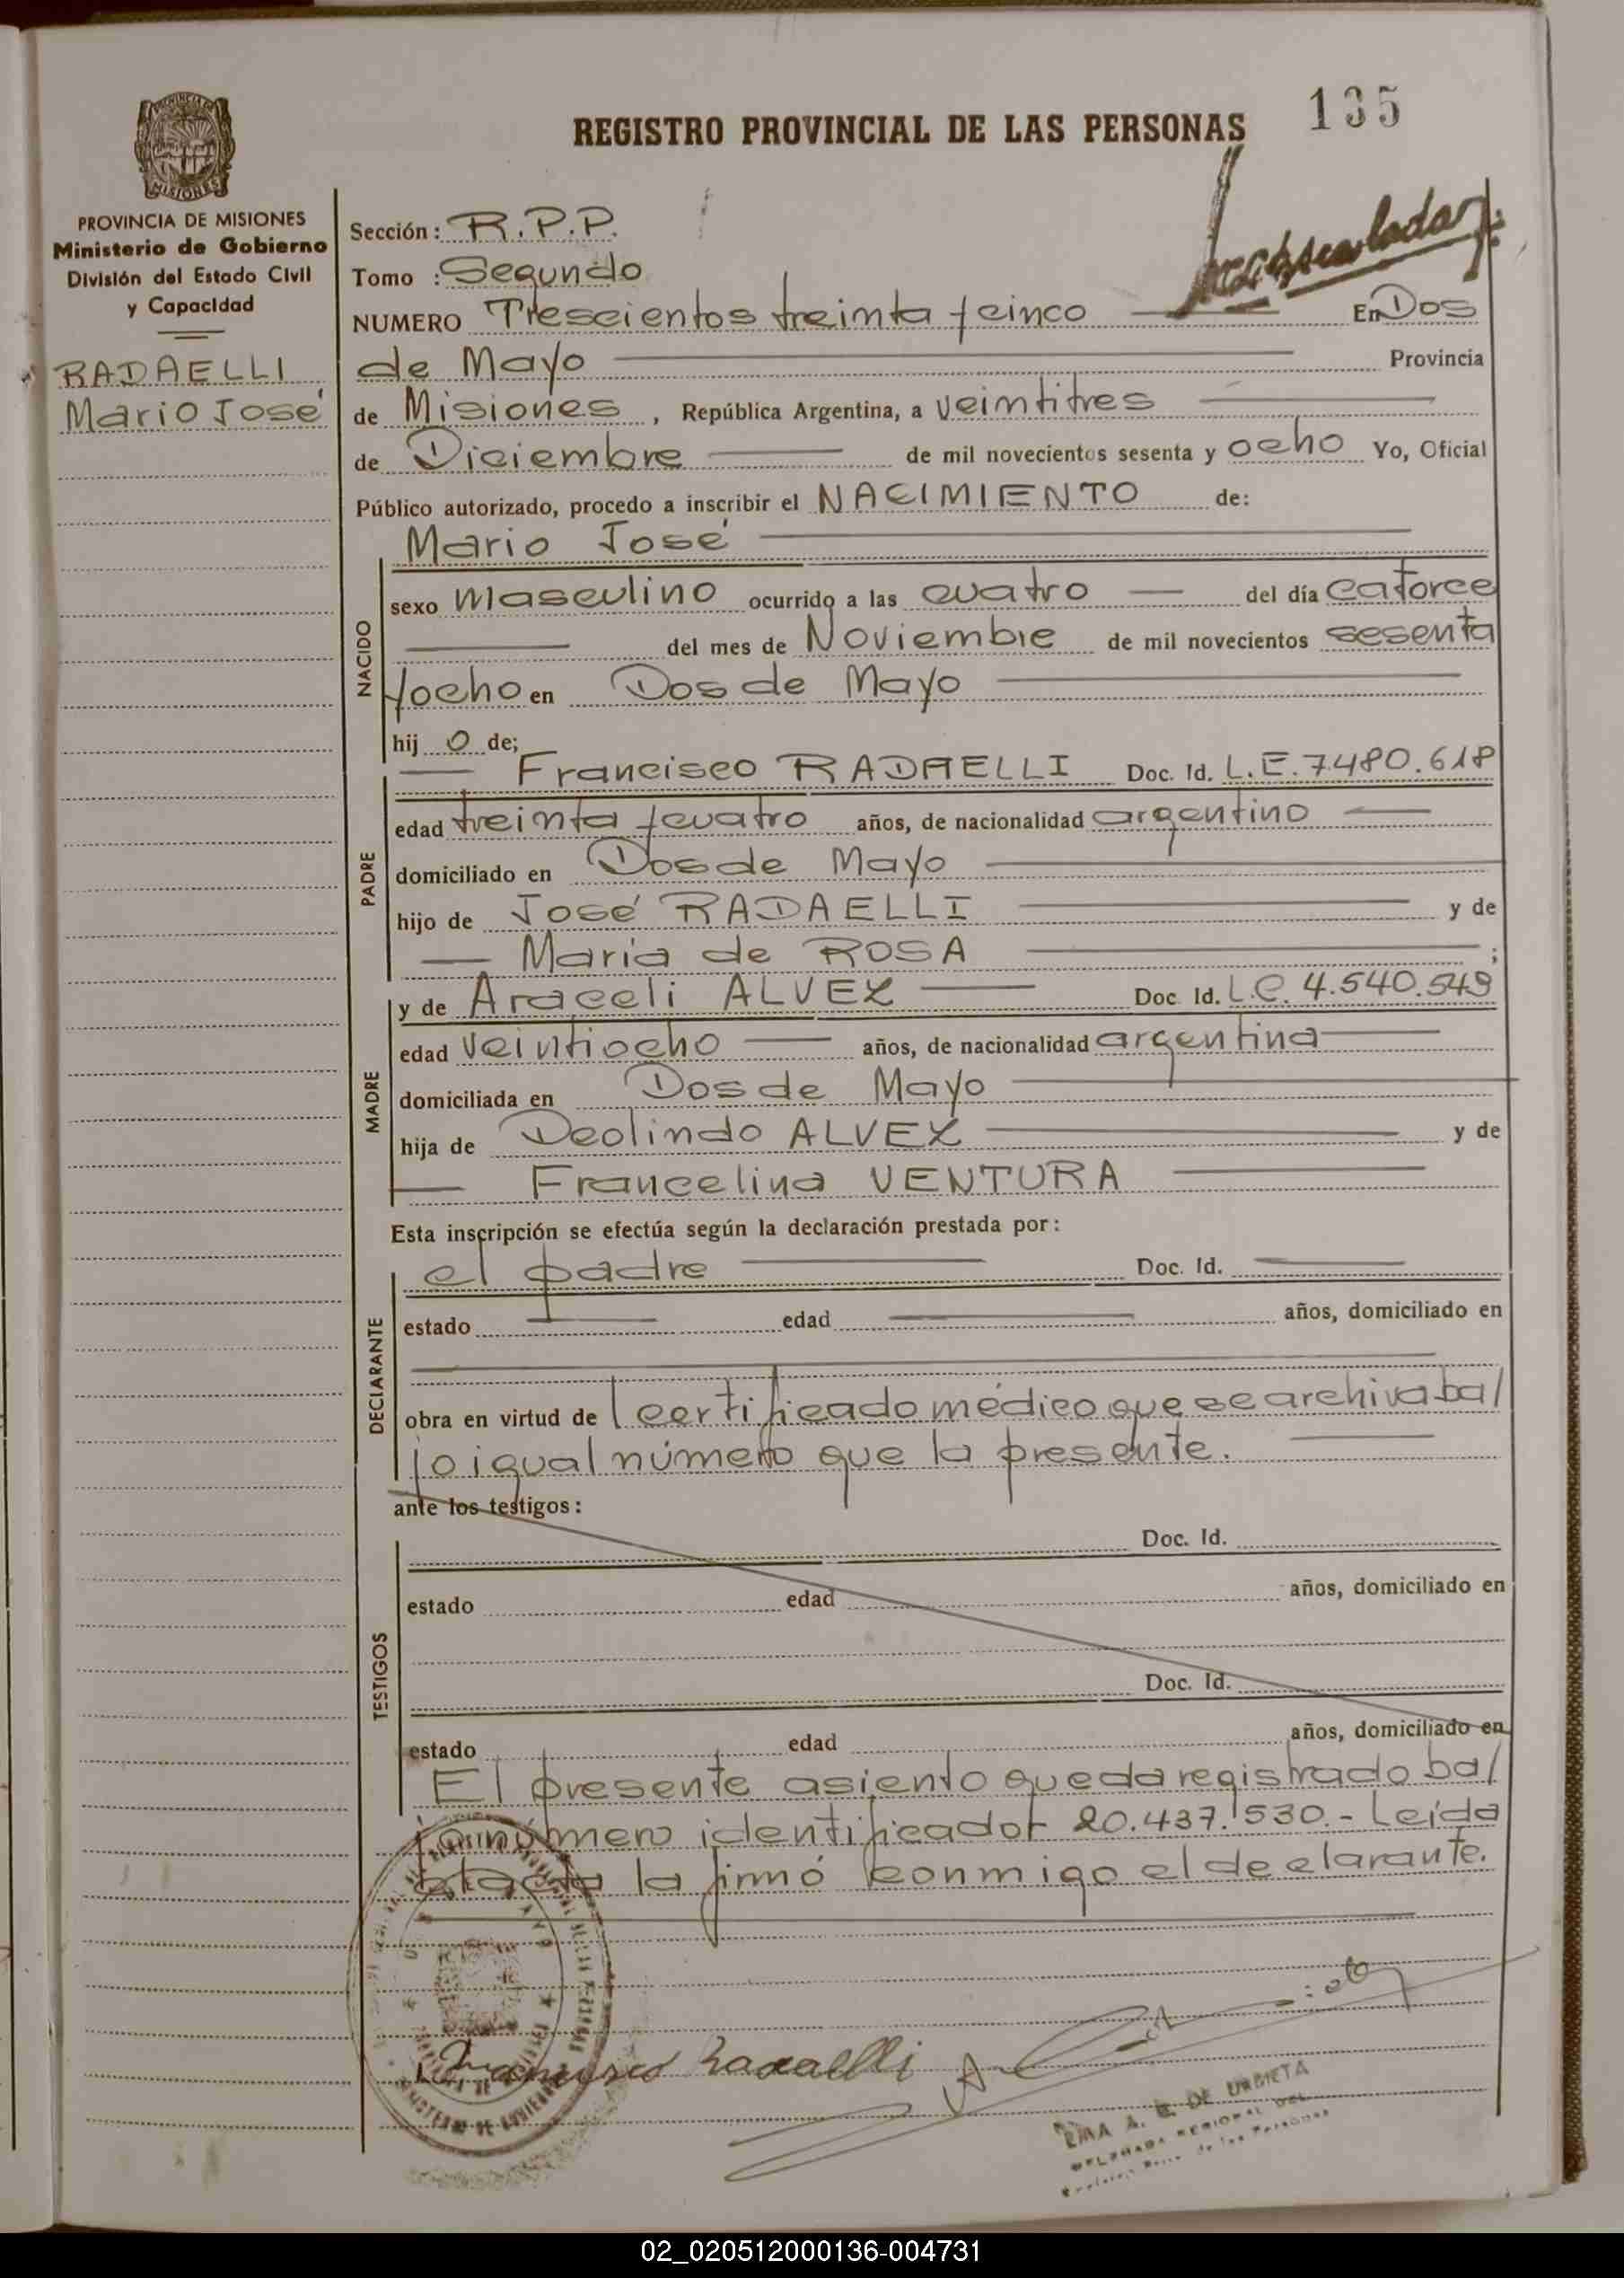 135
REGISTRO PROVINCIAL DE LAS PERSONAS
MISIONES
PROVINCIA DE MISIONES
Ministerio de Gobierno
División del Estado Civil
y Capacidad
RADAELLI
Mario José
Sección: R.P.P.
Tomo : Segundo
NUMERO Trescientos treinta y cinco En Dos
de Mayo Provincia
de Misiones, República Argentina, a veintitres
de Diciembre de mil novecientos sesenta y ocho Yo, Oficial
Público autorizado, procedo a inscribir el NACIMIENTO de:
Mario José
NACIDO
sexo masculino ocurrido a las cuatro del día catorce
del mes de Noviembre de mil novecientos sesenta
y ocho en Dos de Mayo
hij o de;
Francisco RADAELLI Doc. Id. L.E. 7.480.618
PADRE
edad treinta y cuatro años, de nacionalidad argentino
domiciliado en Dos de Mayo
hijo de José RADAELLI y de
Maria de ROSA ;
y de Araceli ALVEZ Doc. Id. L.C. 4.540.549
MADRE
edad veintiocho años, de nacionalidad argentina
domiciliada en Dos de Mayo
hija de Deolindo ALVEZ y de
Francelina VENTURA
Esta inscripción se efectúa según la declaración prestada por:
el padre Doc. Id.
DECLARANTE
estado edad años, domiciliado en
obra en virtud de l certificado médico que se archiva ba/
jo igual número que la presente.
ante los testigos:
Doc. Id.
TESTIGOS
estado edad años, domiciliado en
Doc. Id.
estado edad años, domiciliado en
El presente asiento queda registrado ba/
jo número identificador 20.437.530.- Leída
el acta la firmó conmigo el declarante.
Francisco Radaelli
A. DE URBIETA
02_020512000136-004731